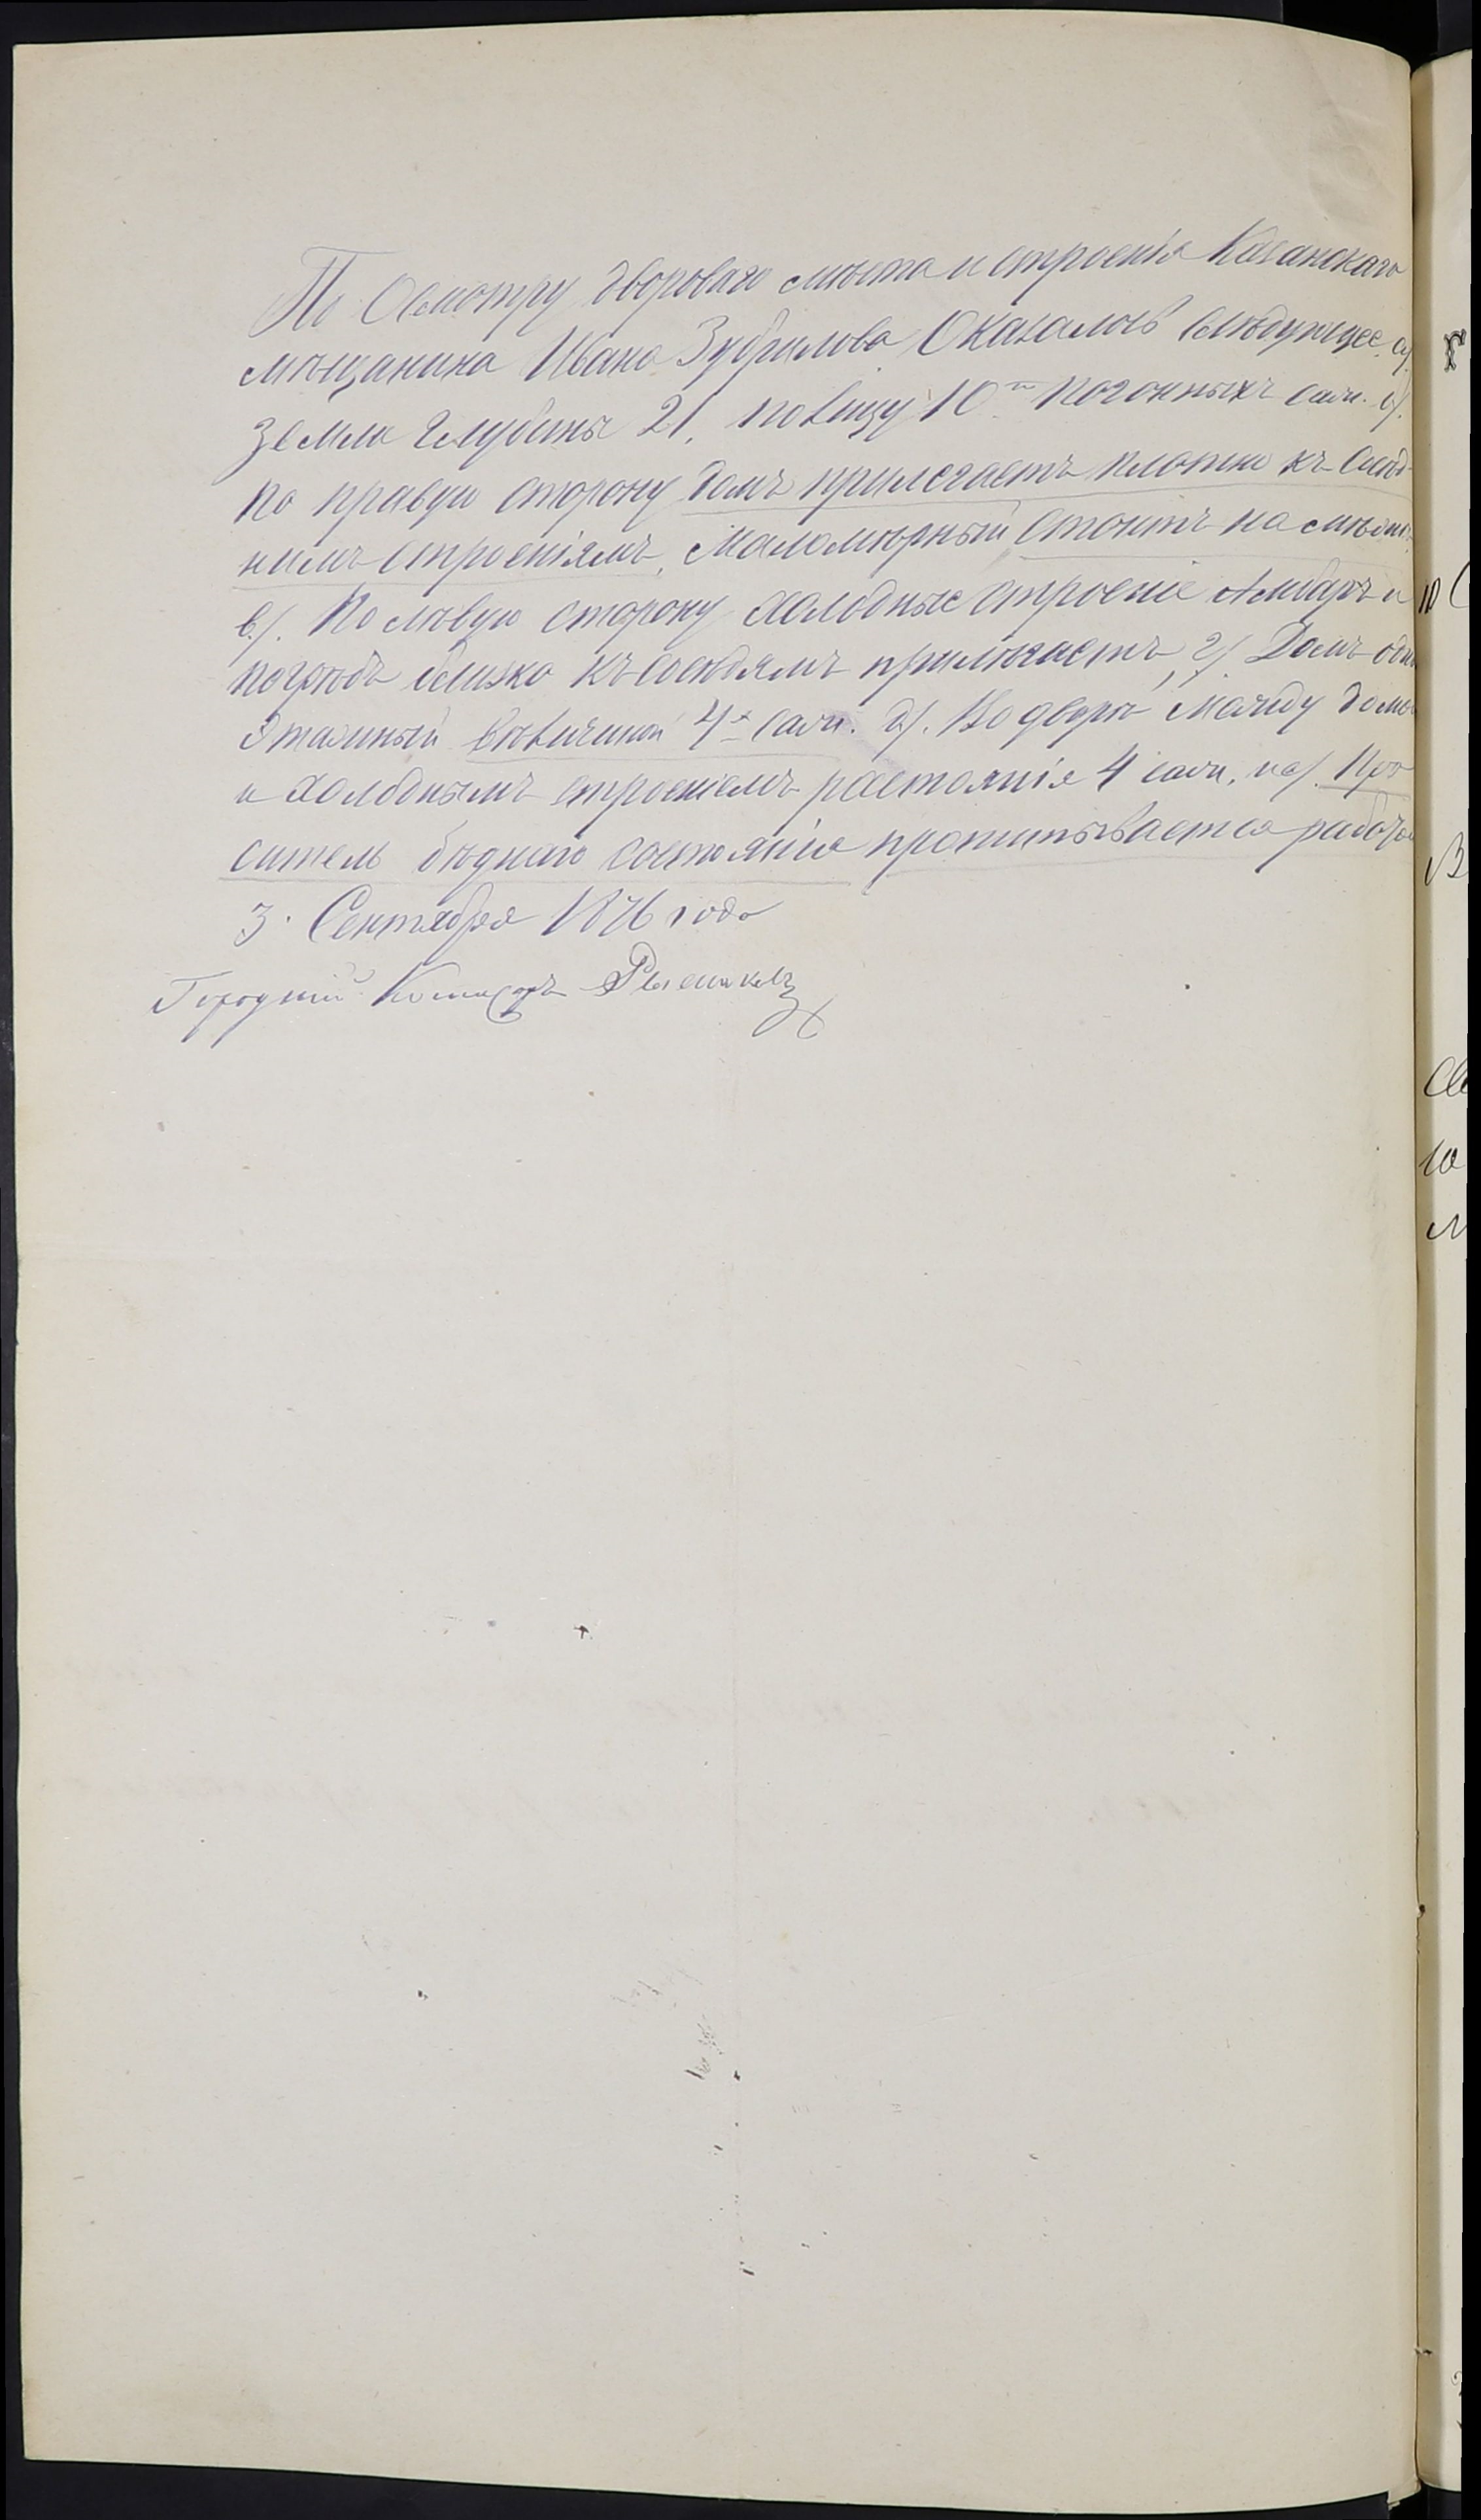 По Осмотру двороваго мѣста и строенія Казанскаго
мѣщанина Ивана Зубрилова Оказалось слѣдующее, а).
земли глубины 21, по лицу 10ти погонныхъ саж. б).
по правую сторону домъ прилегаетъ плотно къ сосѣд-
нимъ строеніямъ, Маломѣрный Стоитъ на
в). По лѣвую сторону холодные строеніе Амбаръ и
погребъ близко къ сосѣдямъ прилѣгаетъ, г) Домъ одно
этажный величиной 4х саж. д). Во дворѣ между домо
и холоднымъ строеніемъ растоянія 4 саж. Про
ситель бѣднаго состоянія пропитывается работой
3. Сентября 1876 года